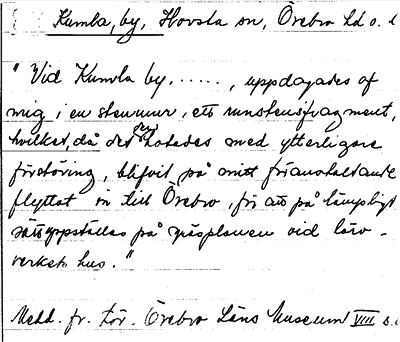 Kumla, by, Hovsta sn, Örebro Ld o. l
"Vid Kumla by, ......, uppdagades af
mig i en stenmur, ett runstensfragment,
hvilket, då det hotades med ytterligare
förstöring, blifvit på mitt föranstaltande
flyttat in till Örebro, för att på lämpligt
sätt uppställas på gräsplanen vid läro-
verkets hus."
Medd. fr. För. Örebro Läns Museum VIII s.